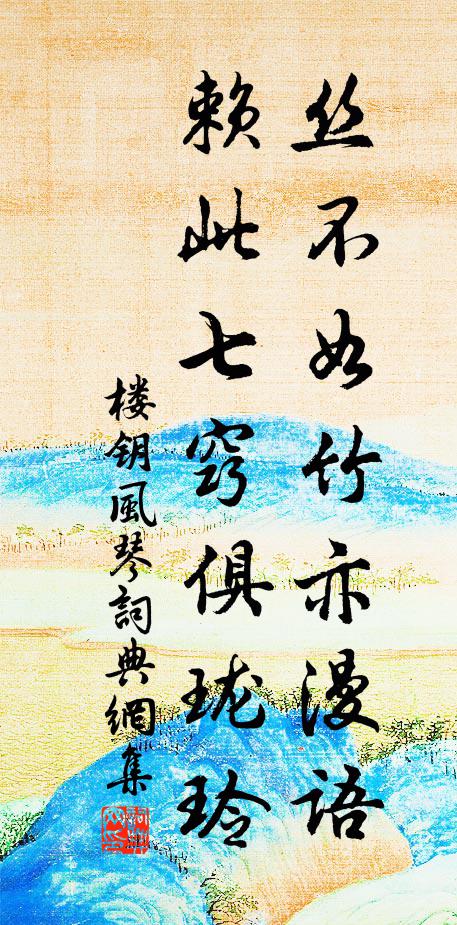 丝不如竹亦漫语
赖此七窍俱珑玲
楼钥风琴詞典網集